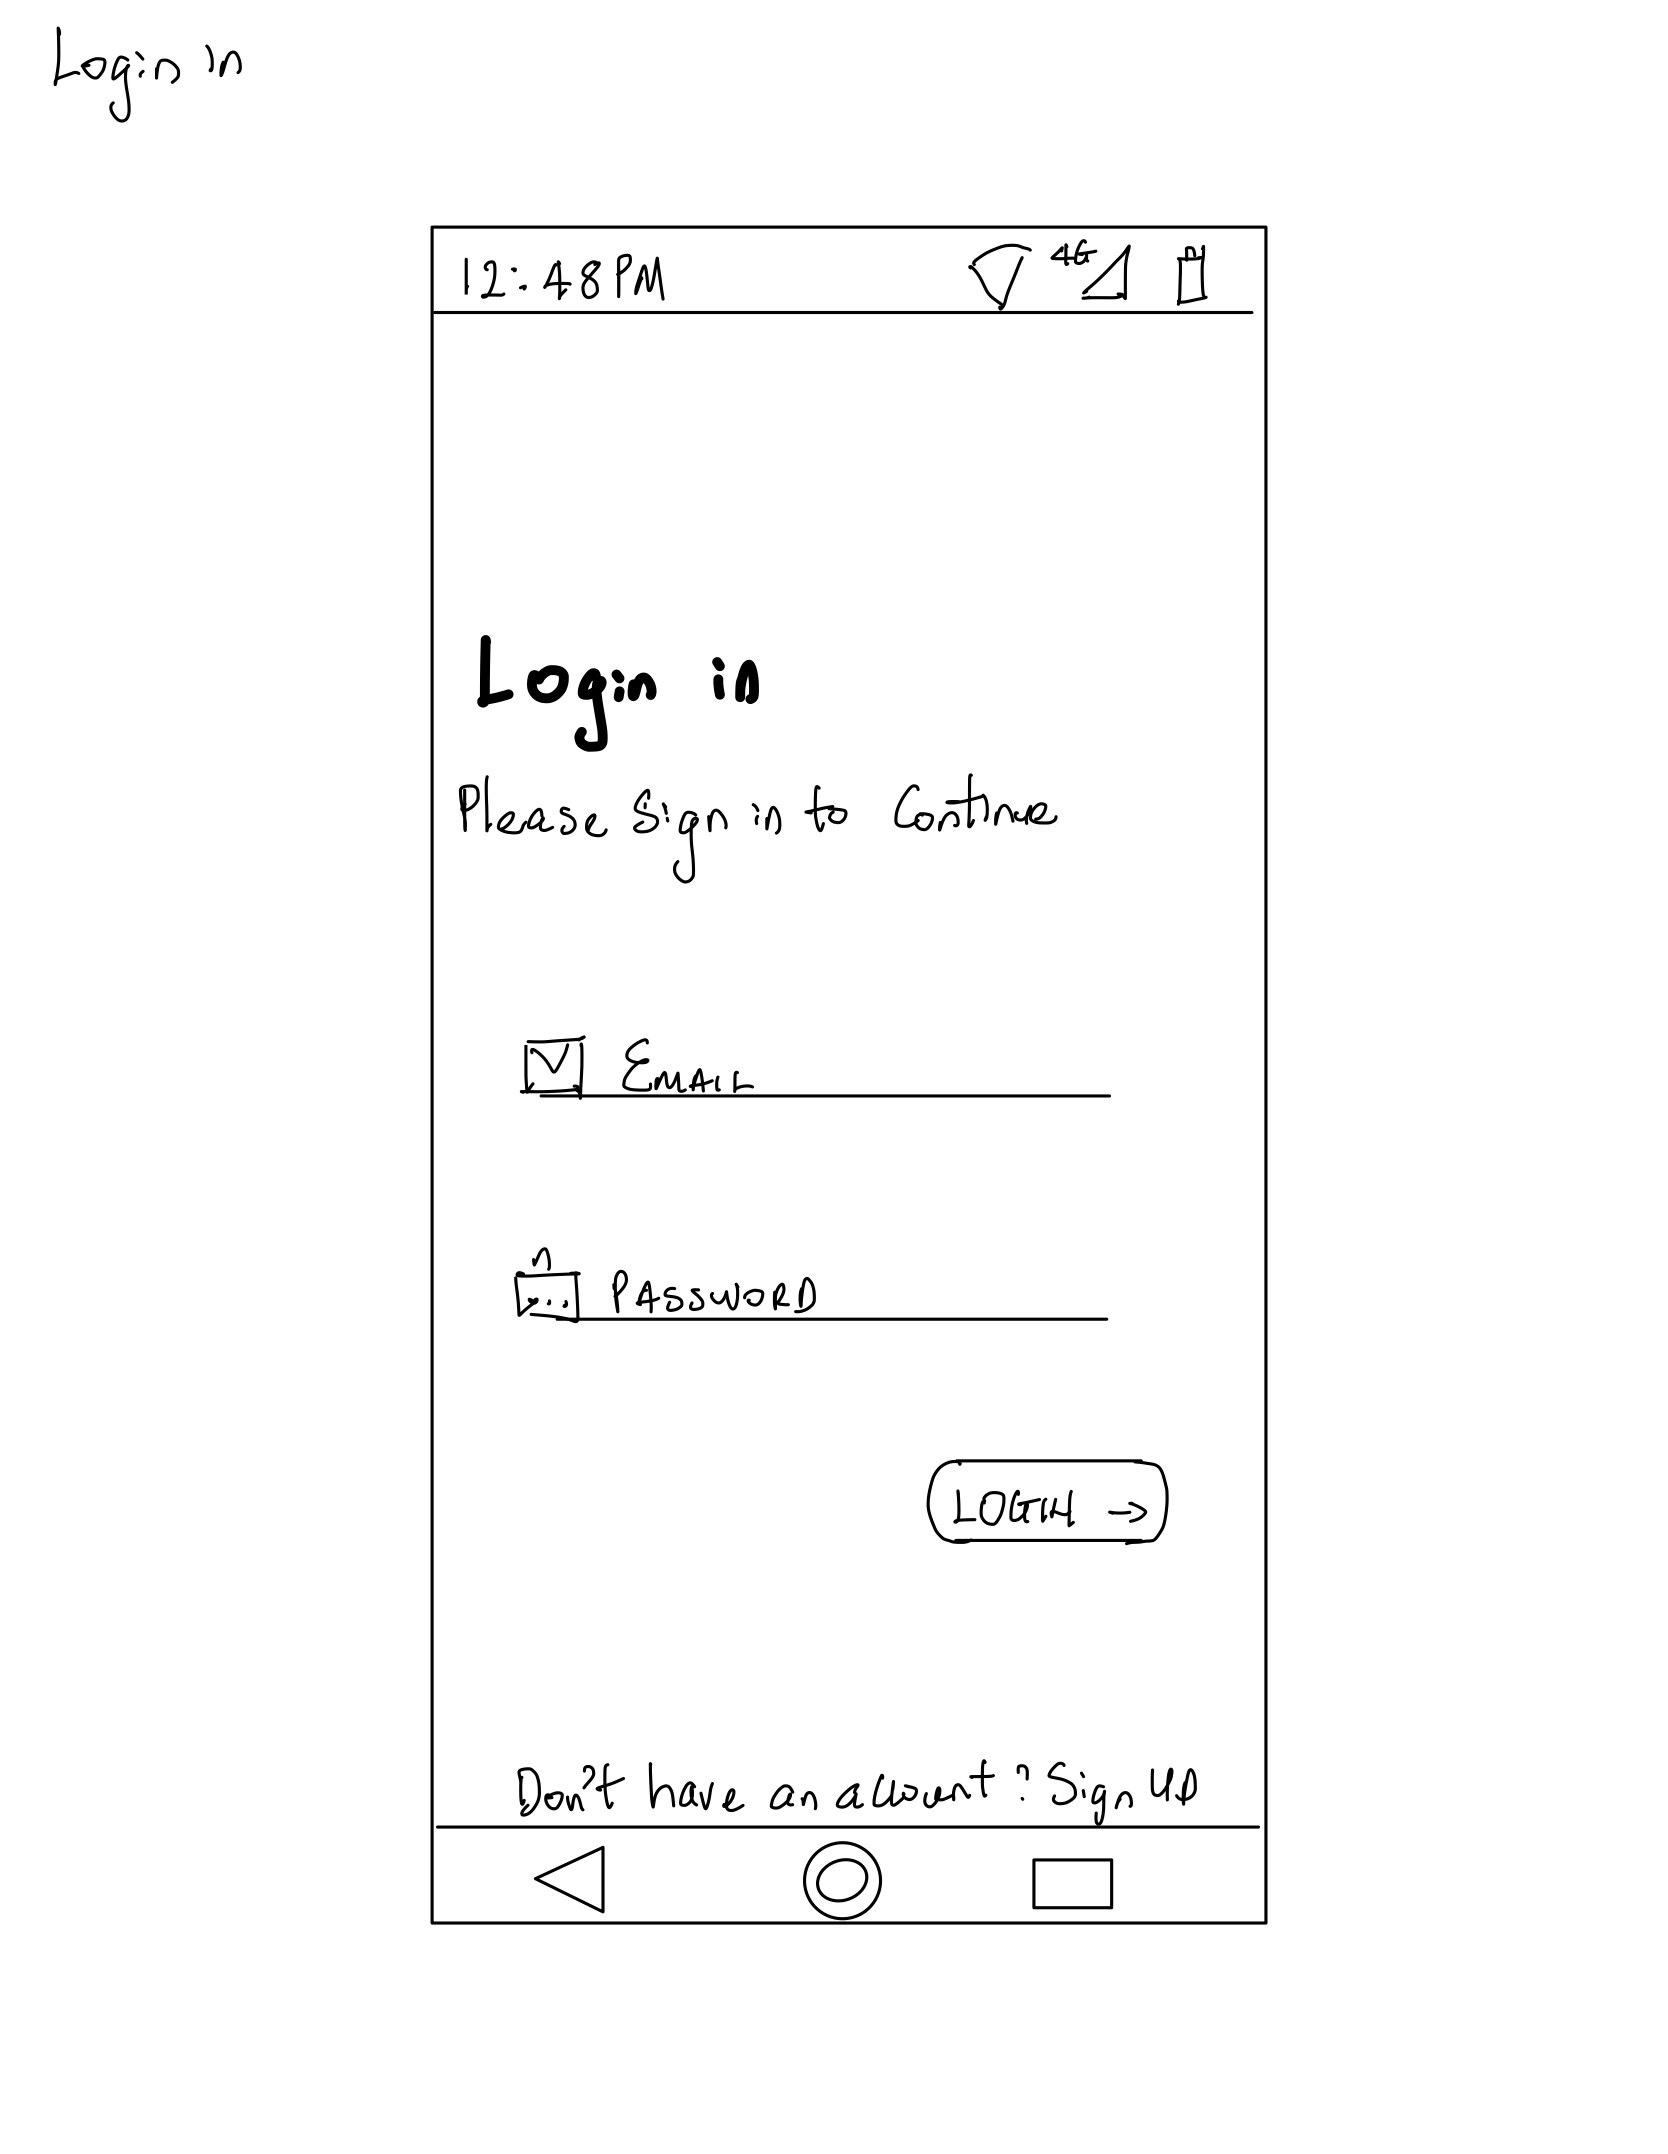 Login in
12:48PM 4G
Login in
Please Sign in to Continue
EMAIL
PASSWORD
LOGIN →
Don't have an account? Sign UP